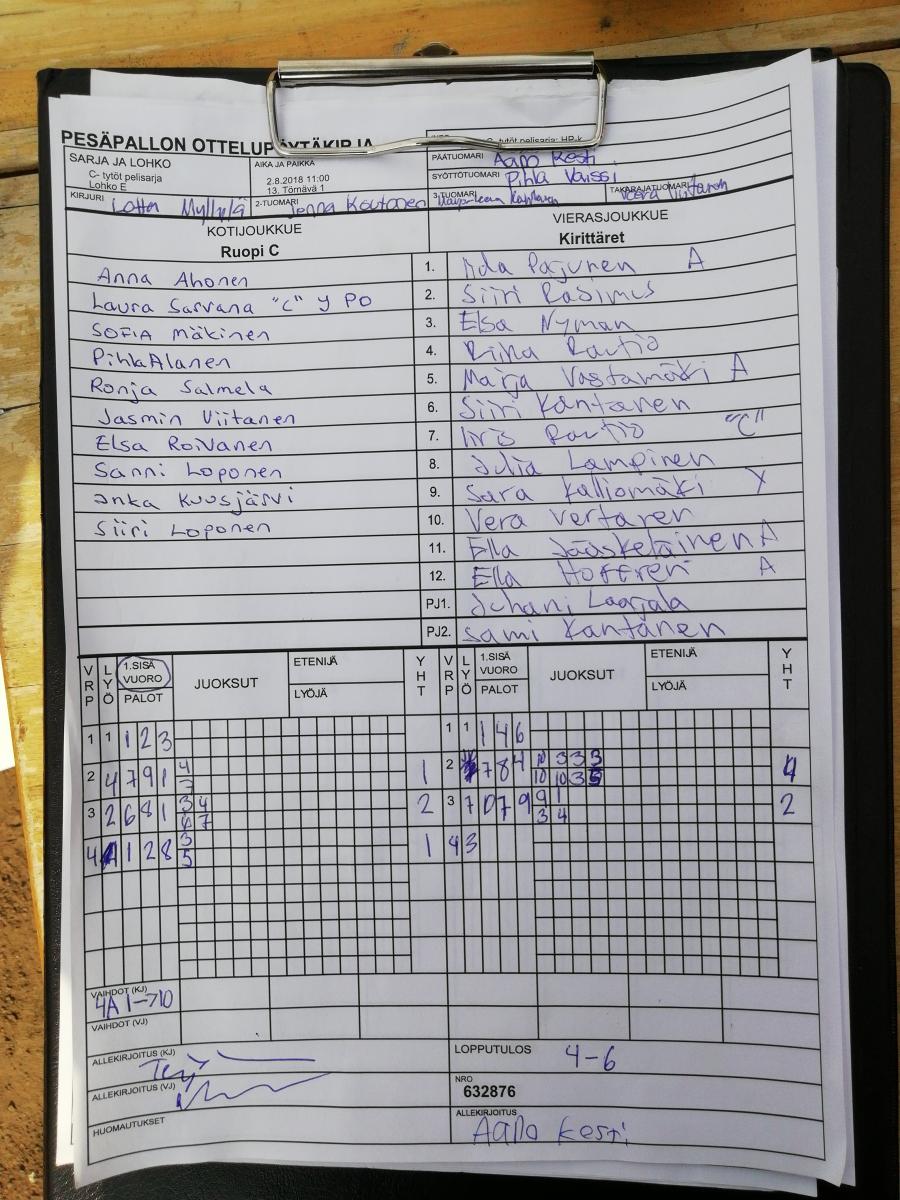 PESÄPALLON OTTELUPÖYTÄKIRJA
C- tytöt pelisarja; HP-k
SARJA JA LOHKO
C- tytöt pelisarja
Lohko E
AIKA JA PAIKKA
2.8.2018 11:00
13. Törnävä 1
PÄÄTUOMARI Aapo Kesti
SYÖTTÖTUOMARI Pihla Vaissi
KIRJURI Lotta Myllylä
2-TUOMARI Jenna Koutonen
3-TUOMARI
TAKARAJATUOMARI
KOTIJOUKKUE
Ruopi C
VIERASJOUKKUE
Kirittäret
Anna Ahonen 1. Iida Pajunen A
Laura Sarvana "C" Y PO 2. Siiri Rasimus
SOFIA Mäkinen 3. Elsa Nyman
Pihla Alanen 4. Riina Rautio
Ronja Salmela 5. Marja Vastamäki A
Jasmin Viitanen 6. Siiri Kantanen
Elsa Roivanen 7. Iiris Rautio "C"
Sanni Loponen 8. Julia Lampinen
Inka Kuusjärvi 9. Sara Kalliomäki Y
Siiri Loponen 10. Vera Vertanen
11. Ella Jääskeläinen A
12. Ella Hoffren A
PJ1. Juhani Laarjala
PJ2. Sami Kantanen
VRP LYÖ 1.SISÄ VUORO PALOT JUOKSUT ETENIJÄ LYÖJÄ YHT VRP LYÖ 1.SISÄ VUORO PALOT JUOKSUT ETENIJÄ LYÖJÄ YHT
1 1 1 2 3 1 1 1 4 6
2 4 7 9 1 4 1 2 7 8 4 10 3 3 3 4
7 10 10 3 5
3 2 6 8 1 3 4 2 3 7 10 7 9 9 1 2
7 3 4
4 1 2 8 3 1 4 3
5
VAIHDOT (KJ)
4A 1->10
VAIHDOT (VJ)
ALLEKIRJOITUS (KJ)
LOPPUTULOS 4-6
ALLEKIRJOITUS (VJ)
NRO
632876
HUOMAUTUKSET
ALLEKIRJOITUS
Aapo Kesti